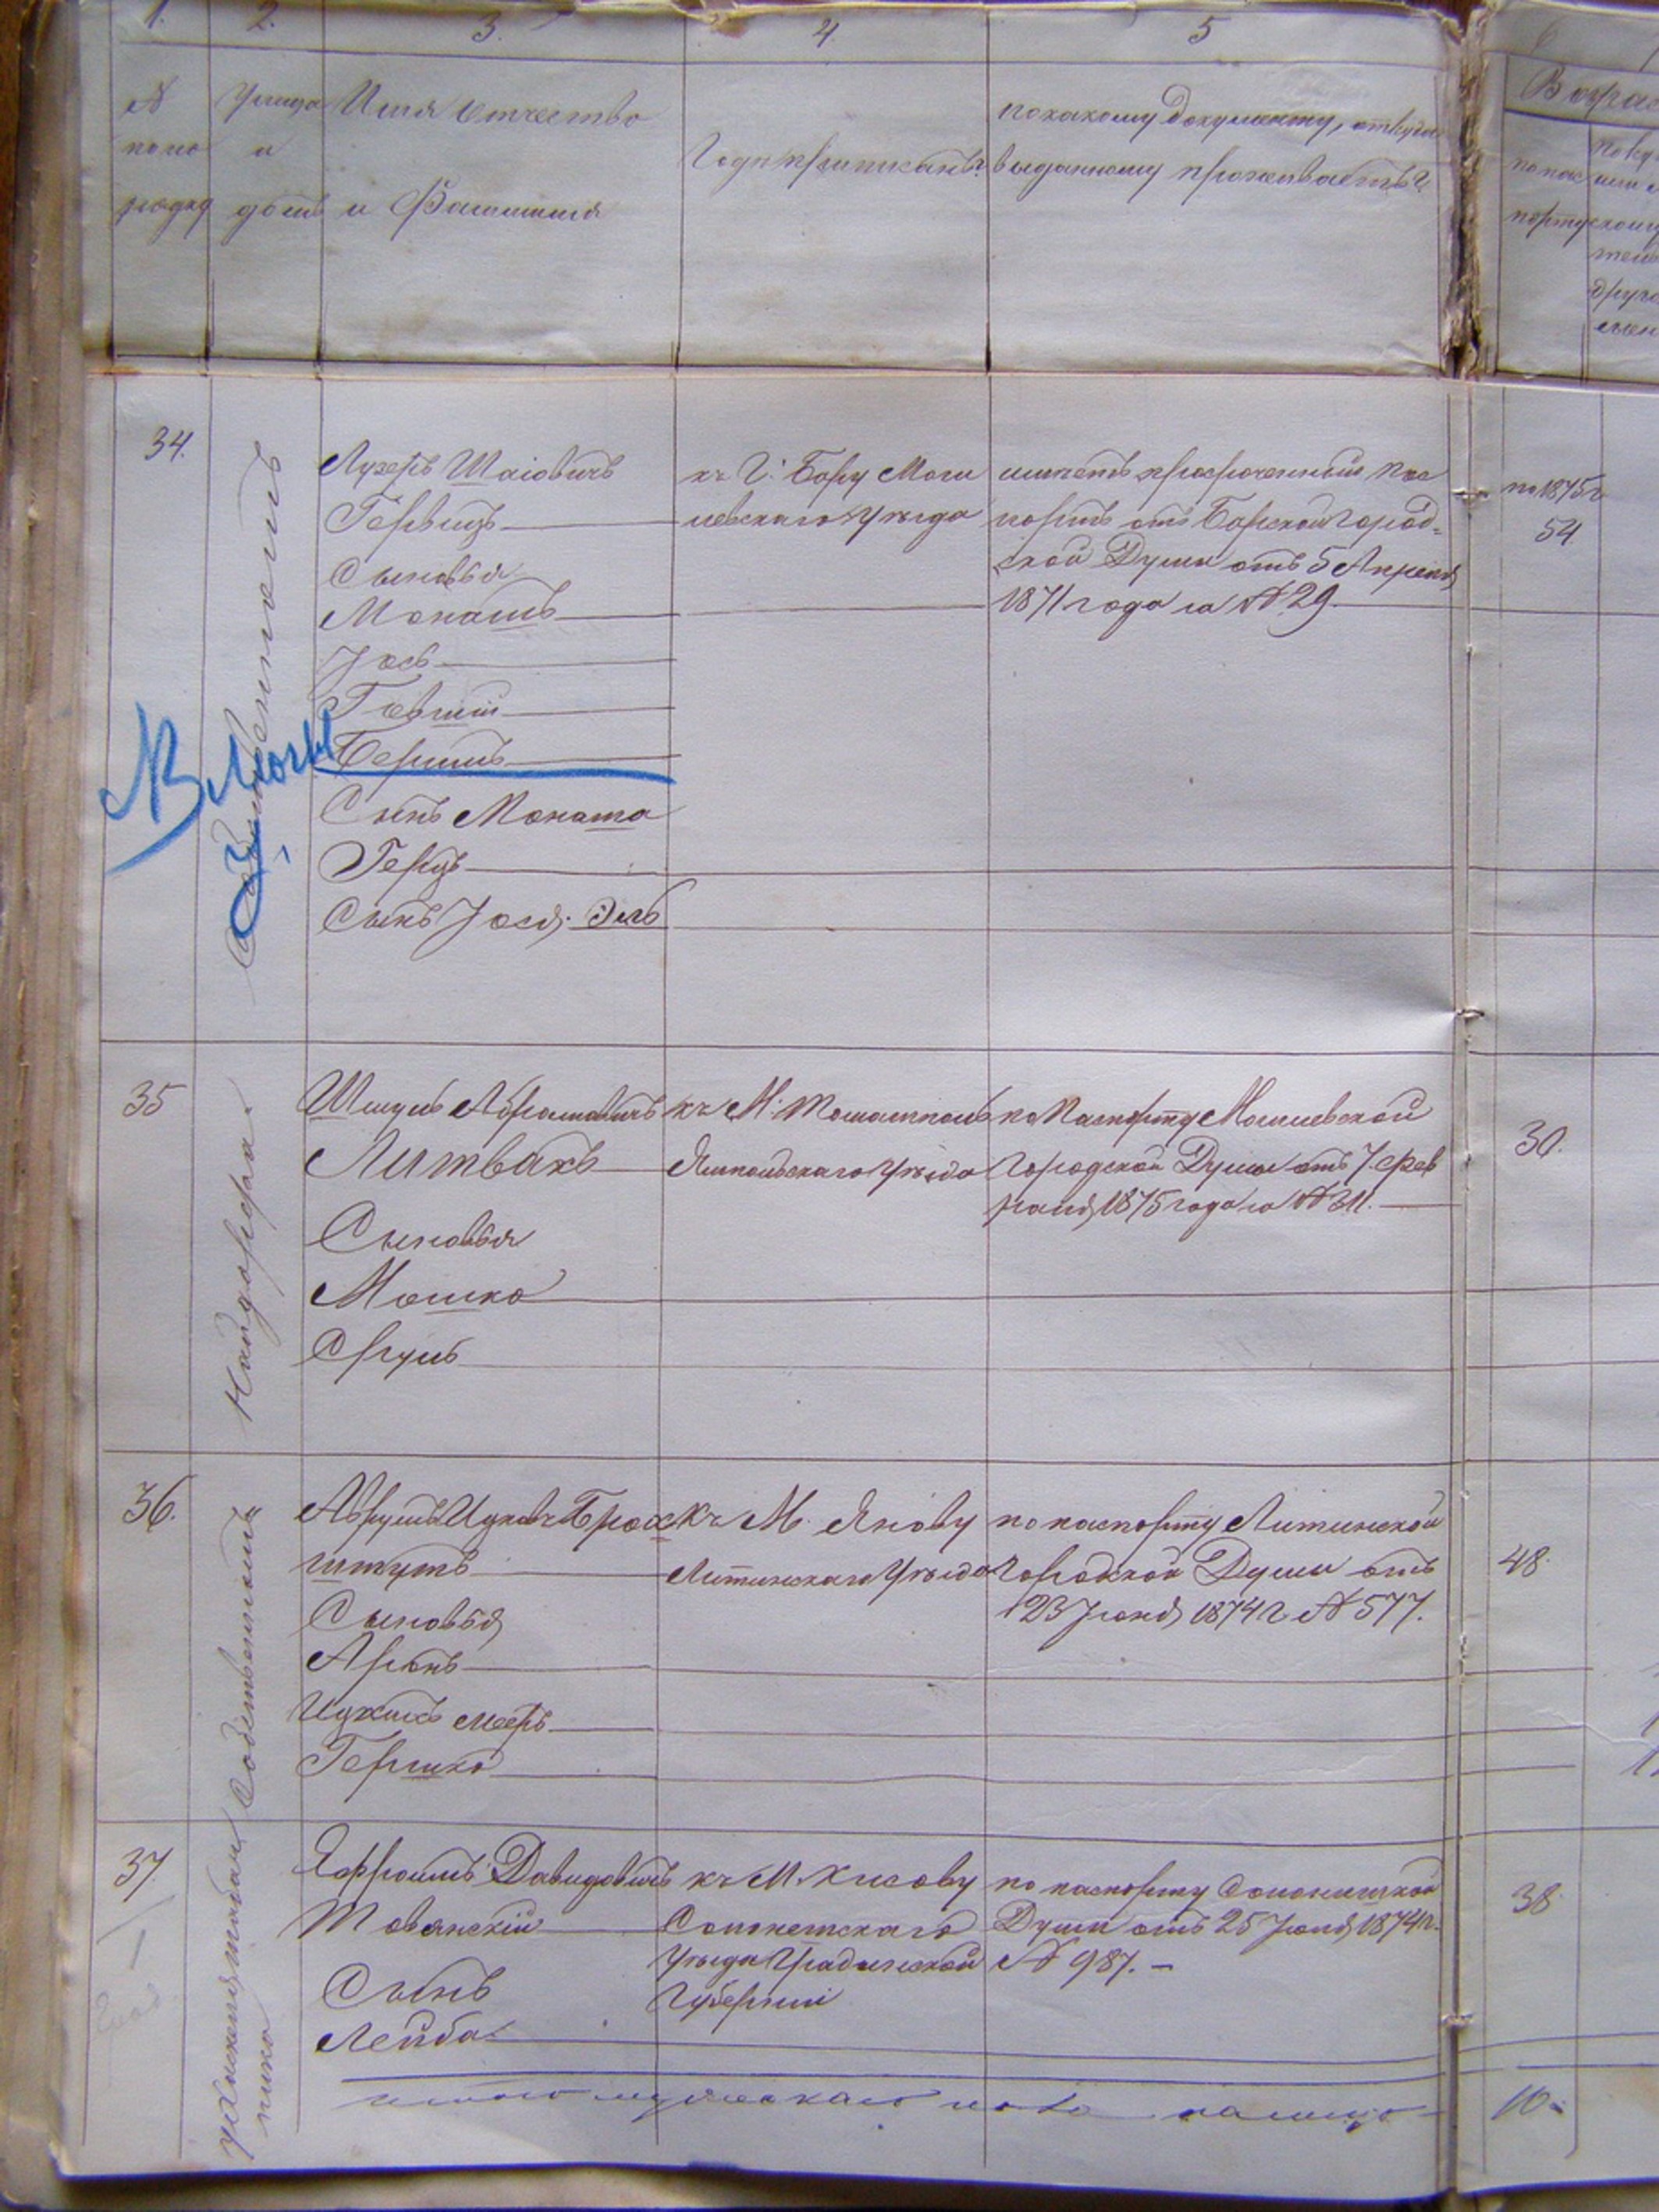 1. 2. 3. 4. 5
№ Улица Имя Отчество
по по и
рядку домъ и Фамилия
Годъ приписанъ?
по какому Документу, откуда
выданному проживаетъ?
Возрас
по пас
порту
34. Собственномъ
Лузеръ Шаіовичъ
Гервицъ
Сыновья
Монашъ
Іось
Гевшій
Бершъ
Сынъ Монаша
Герцъ
Сынъ Іося Эль
къ Г. Бару Моги
левскаго Уѣзда
имѣетъ просроченный пас
портъ отъ Барской Город-
ской Думы отъ 5 Апреля
1871 года за № 29.
по 1875 г
54
35 Найдорфа
Шмуль Абрамовичъ
Литвакъ
Сыновья
Мошко
Сруль
къ М. Томашполь
Ямпольскаго Уѣзда
по Паспорту Могилевской
Городской Думы отъ 7 Фев
раля 1875 года за № 311.
30.
36. Собственномъ
Аврумъ Ицковъ Брох
штутъ
Сыновья
Аронъ
Ицхокъ Мееръ
Гершко
къ М. Янову
Литинскаго Уѣзда
по паспорту Литинской
Городской Думы отъ
23 Іюня 1874 г № 577.
48.
37.
Ефроимъ Давидовичъ
Товянскій
Сынъ
Лейба
къ М.
Слонимскаго
Уѣзда Гродненской
Губерніи
по паспорту Слонимской
Думы отъ 25 Іюня 1874 г.
№ 987. –
38.
мужескаго пола
10.